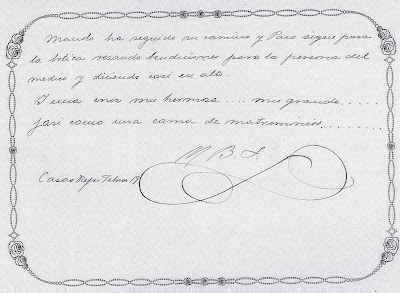 Manolo ha seguido su camino y Paco sigue para
la botica rezando bendiciones para la persona del
medico y diciendo casi en alto.
Y una mas hermosa .... mas grande .....
¡así como una cama de matrimonio........
M B F.
Casas